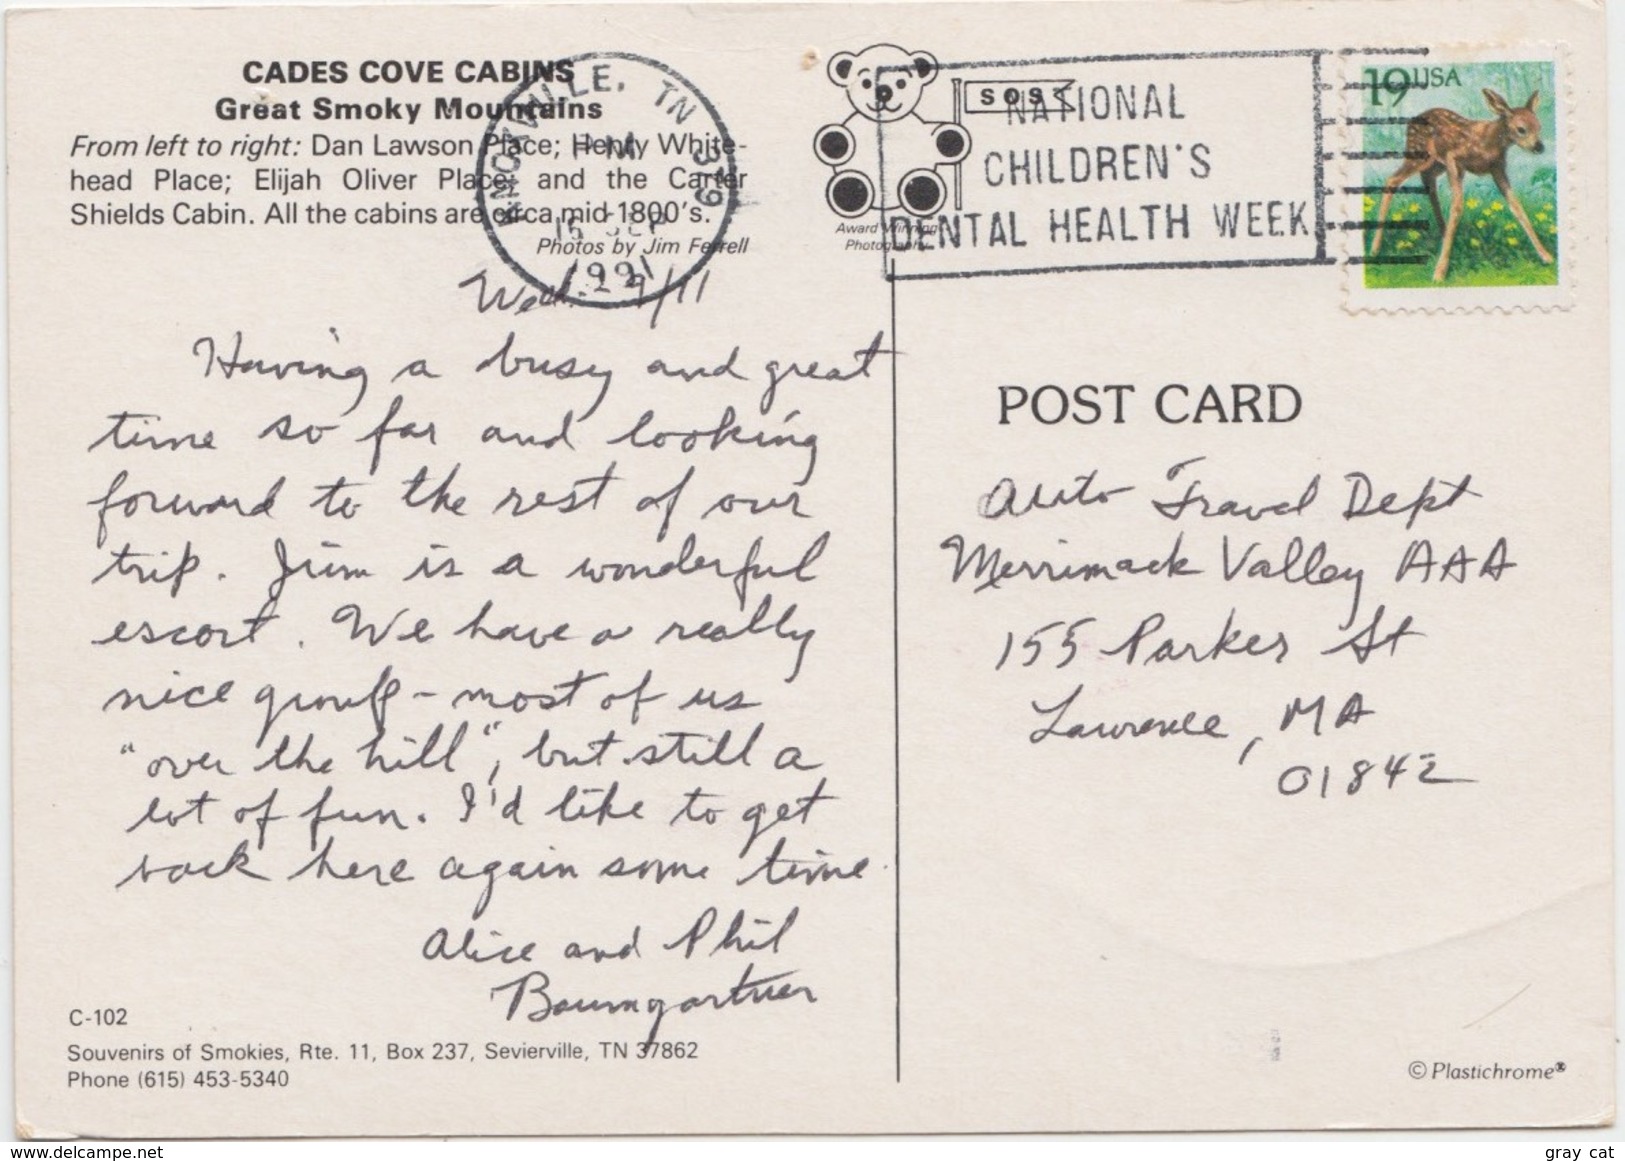 CADES COVE CABINS
Great Smoky Mountains
From left to right: Dan Lawson Place; Henry White-
head Place; Elijah Oliver Place; and the Carter
Shields Cabin. All the cabins are circa mid-1800's.
Photos by Jim Ferrell
KNOXVILLE, TN 379
PM
16 SEP
1991
SOS
Award Winning
Photography
NATIONAL
CHILDREN'S
DENTAL HEALTH WEEK
19 USA
Wed. 9/11
Having a busy and great
time so far and looking
forward to the rest of our
trip. Jim is a wonderful
escort. We have a really
nice group - most of us
"over the hill", but still a
lot of fun. I'd like to get
back here again some time.
Alice and Phil
Baumgartner
POST CARD
Auto Travel Dept
Merrimack Valley AAA
155 Parker St
Lawrence, MA
01842
C-102
Souvenirs of Smokies, Rte. 11, Box 237, Sevierville, TN 37862
Phone (615) 453-5340
© Plastichrome®
delcampe.net
gray cat